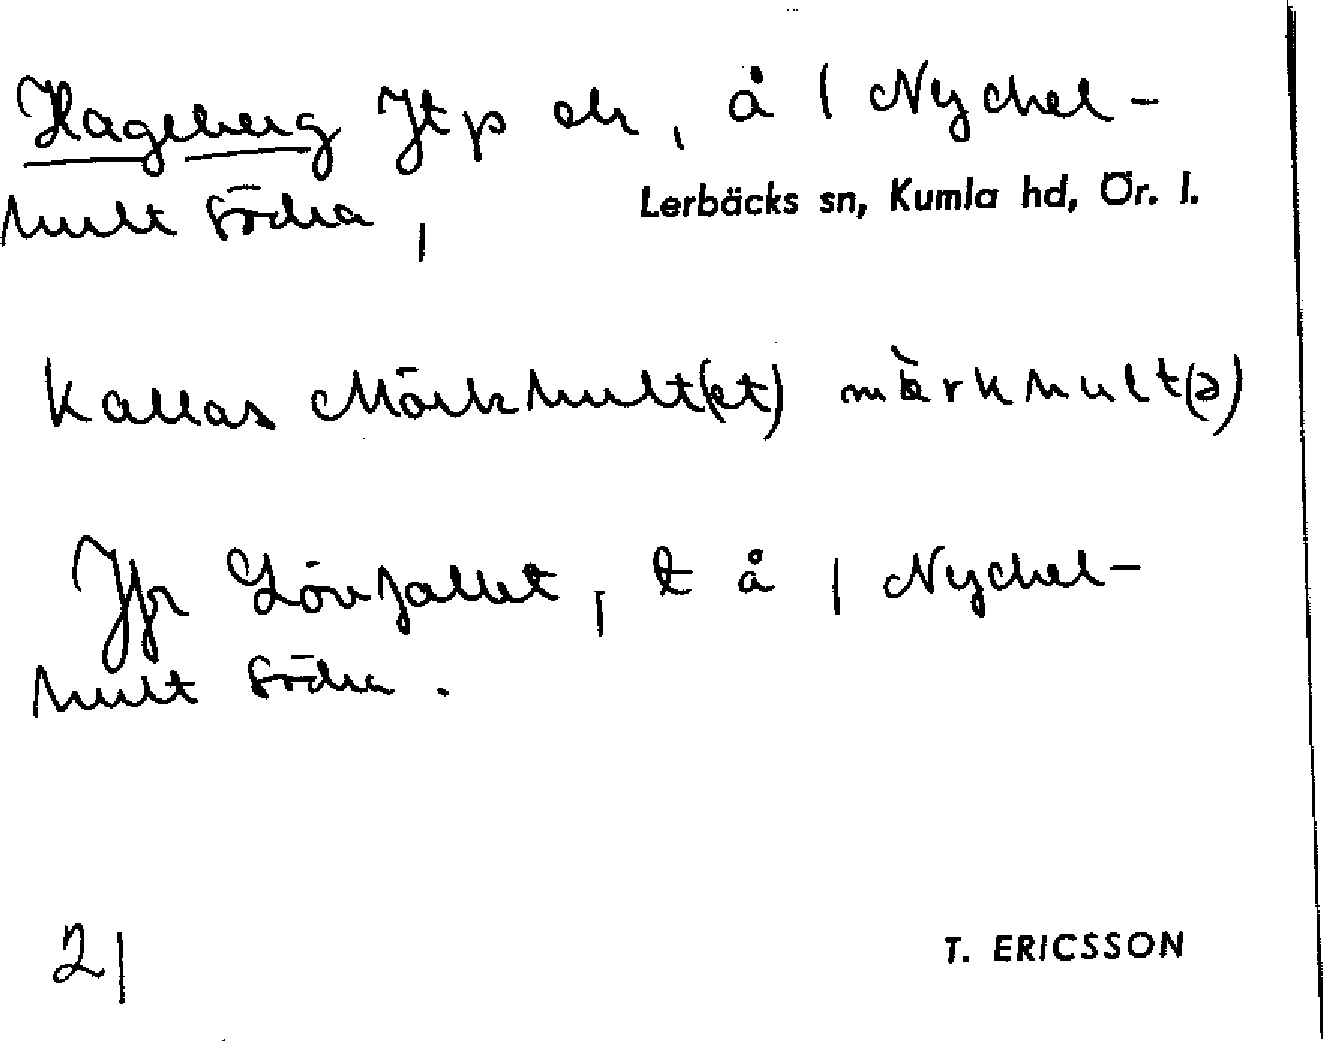 Hageberg Jtp ek, å 1 Nyckel-
hult Södra,
Lerbäcks sn, Kumla hd, Ör. l.
Kallas Mörkhult(et) mὰrkhult(ə)
Jfr Lövfallet, t å 1 Nyckel-
hult Södra.
21
T. ERICSSON